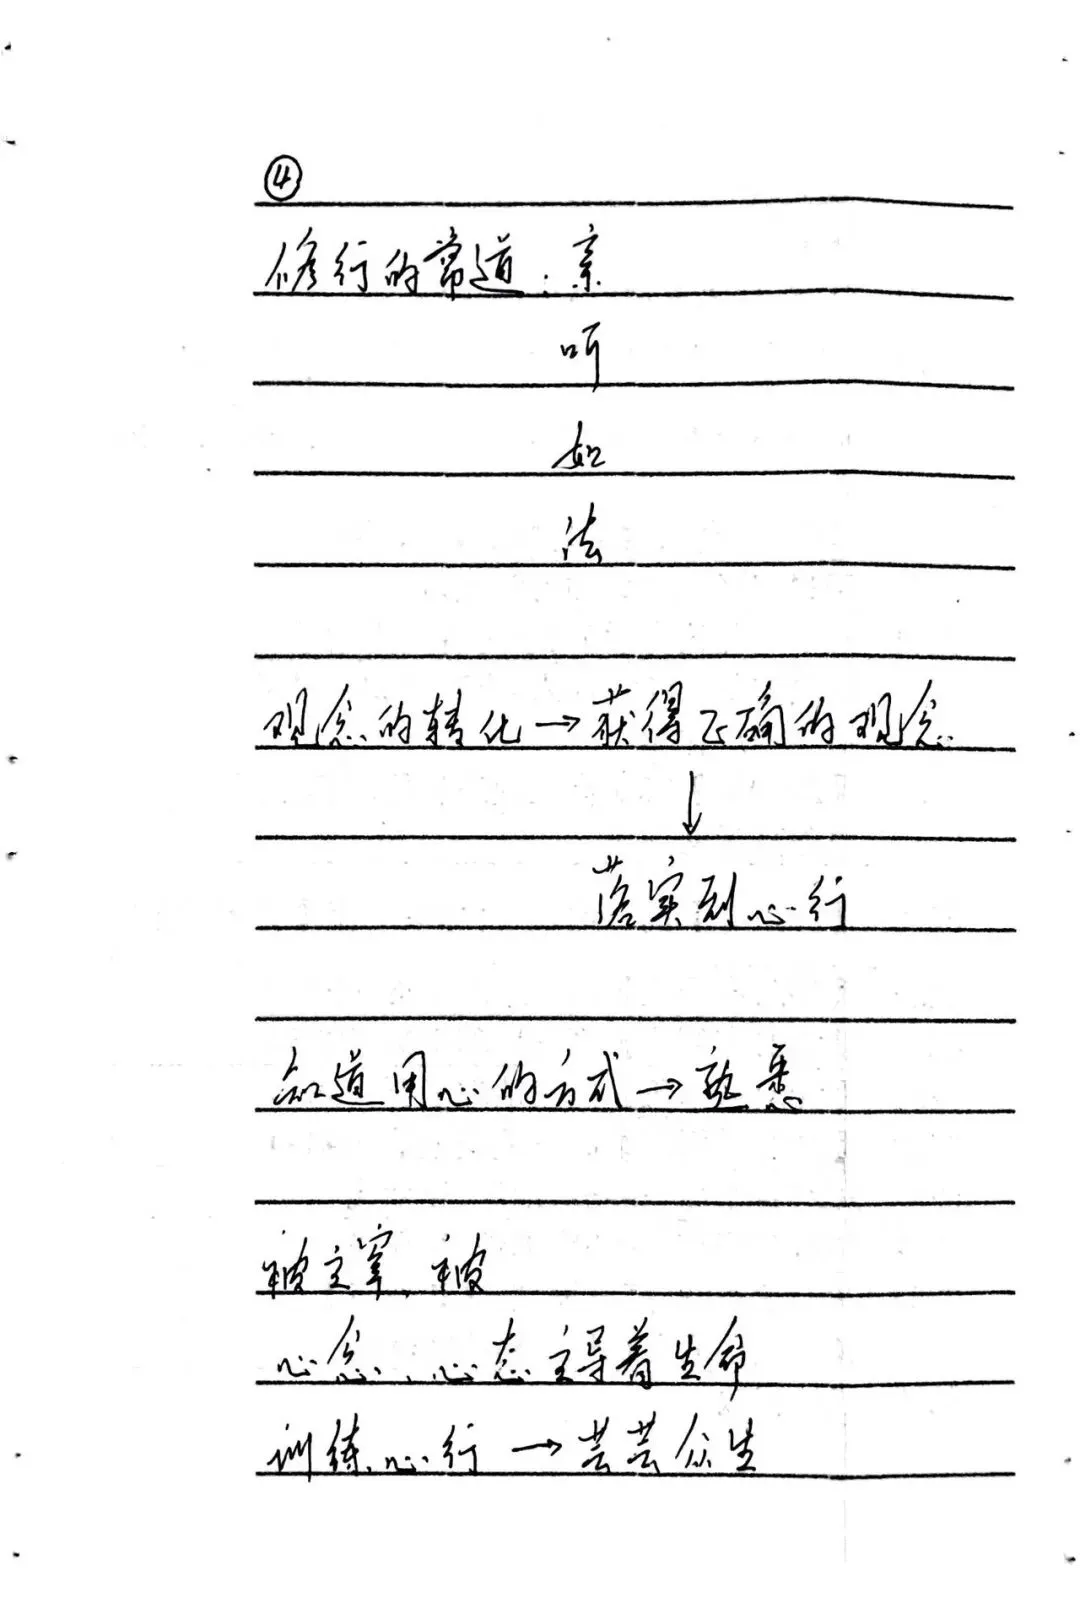 ④
修行的常道:亲
听
如
法
观念的转化→获得正确的观念
↓
落实到心行
知道用心的方式→熟悉
被主宰,被
心念、心态主导着生命
训练心行→芸芸众生